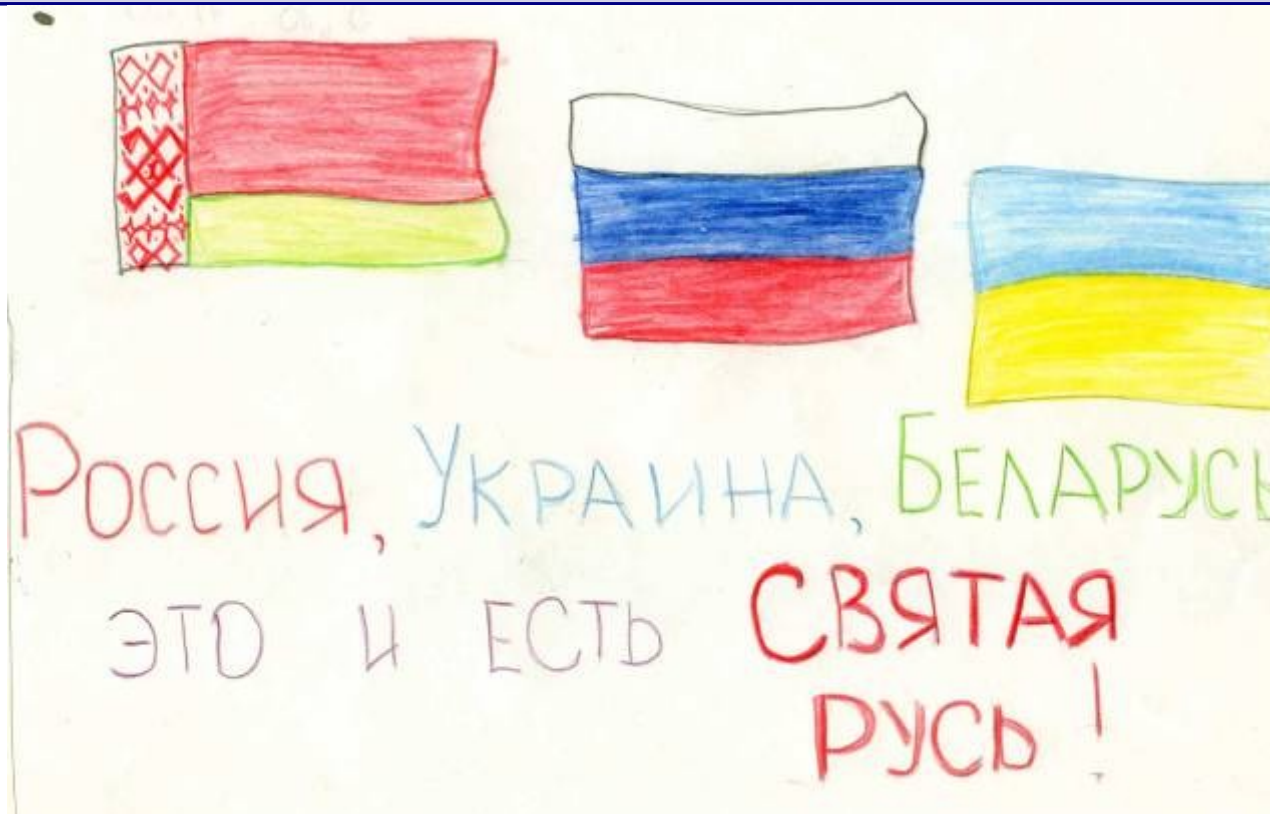 Россия, Украина, Беларусь
это и есть СВЯТАЯ
РУСЬ!